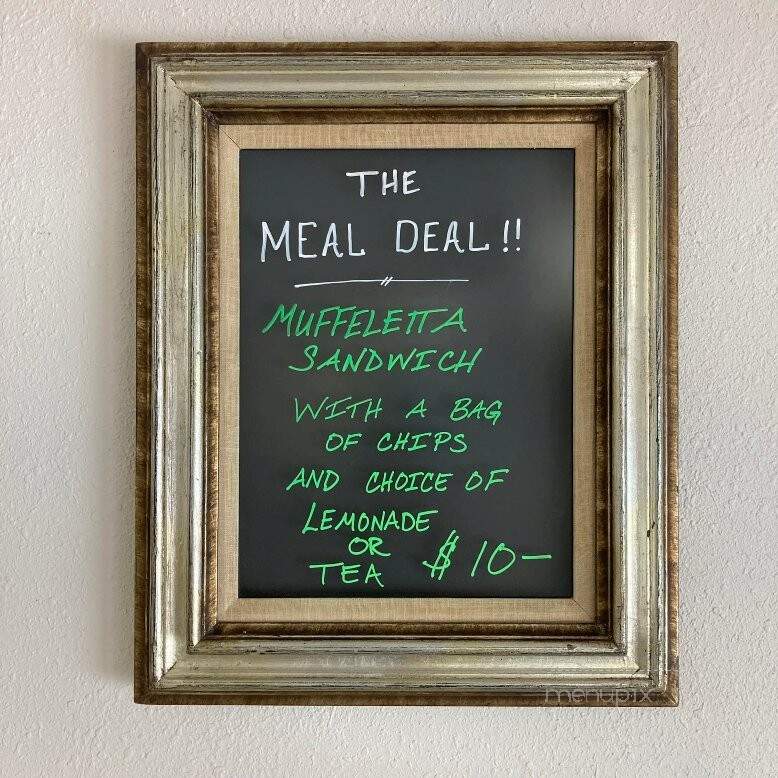 THE
MEAL DEAL!!
MUFFELETTA
SANDWICH
WITH A BAG
OF CHIPS
AND CHOICE OF
LEMONADE
OR
TEA $10-
menupix